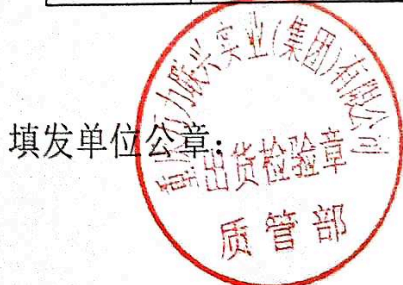 填发单位公章：
力跃兴实业(集团)有限公司
出货检验章
质管部